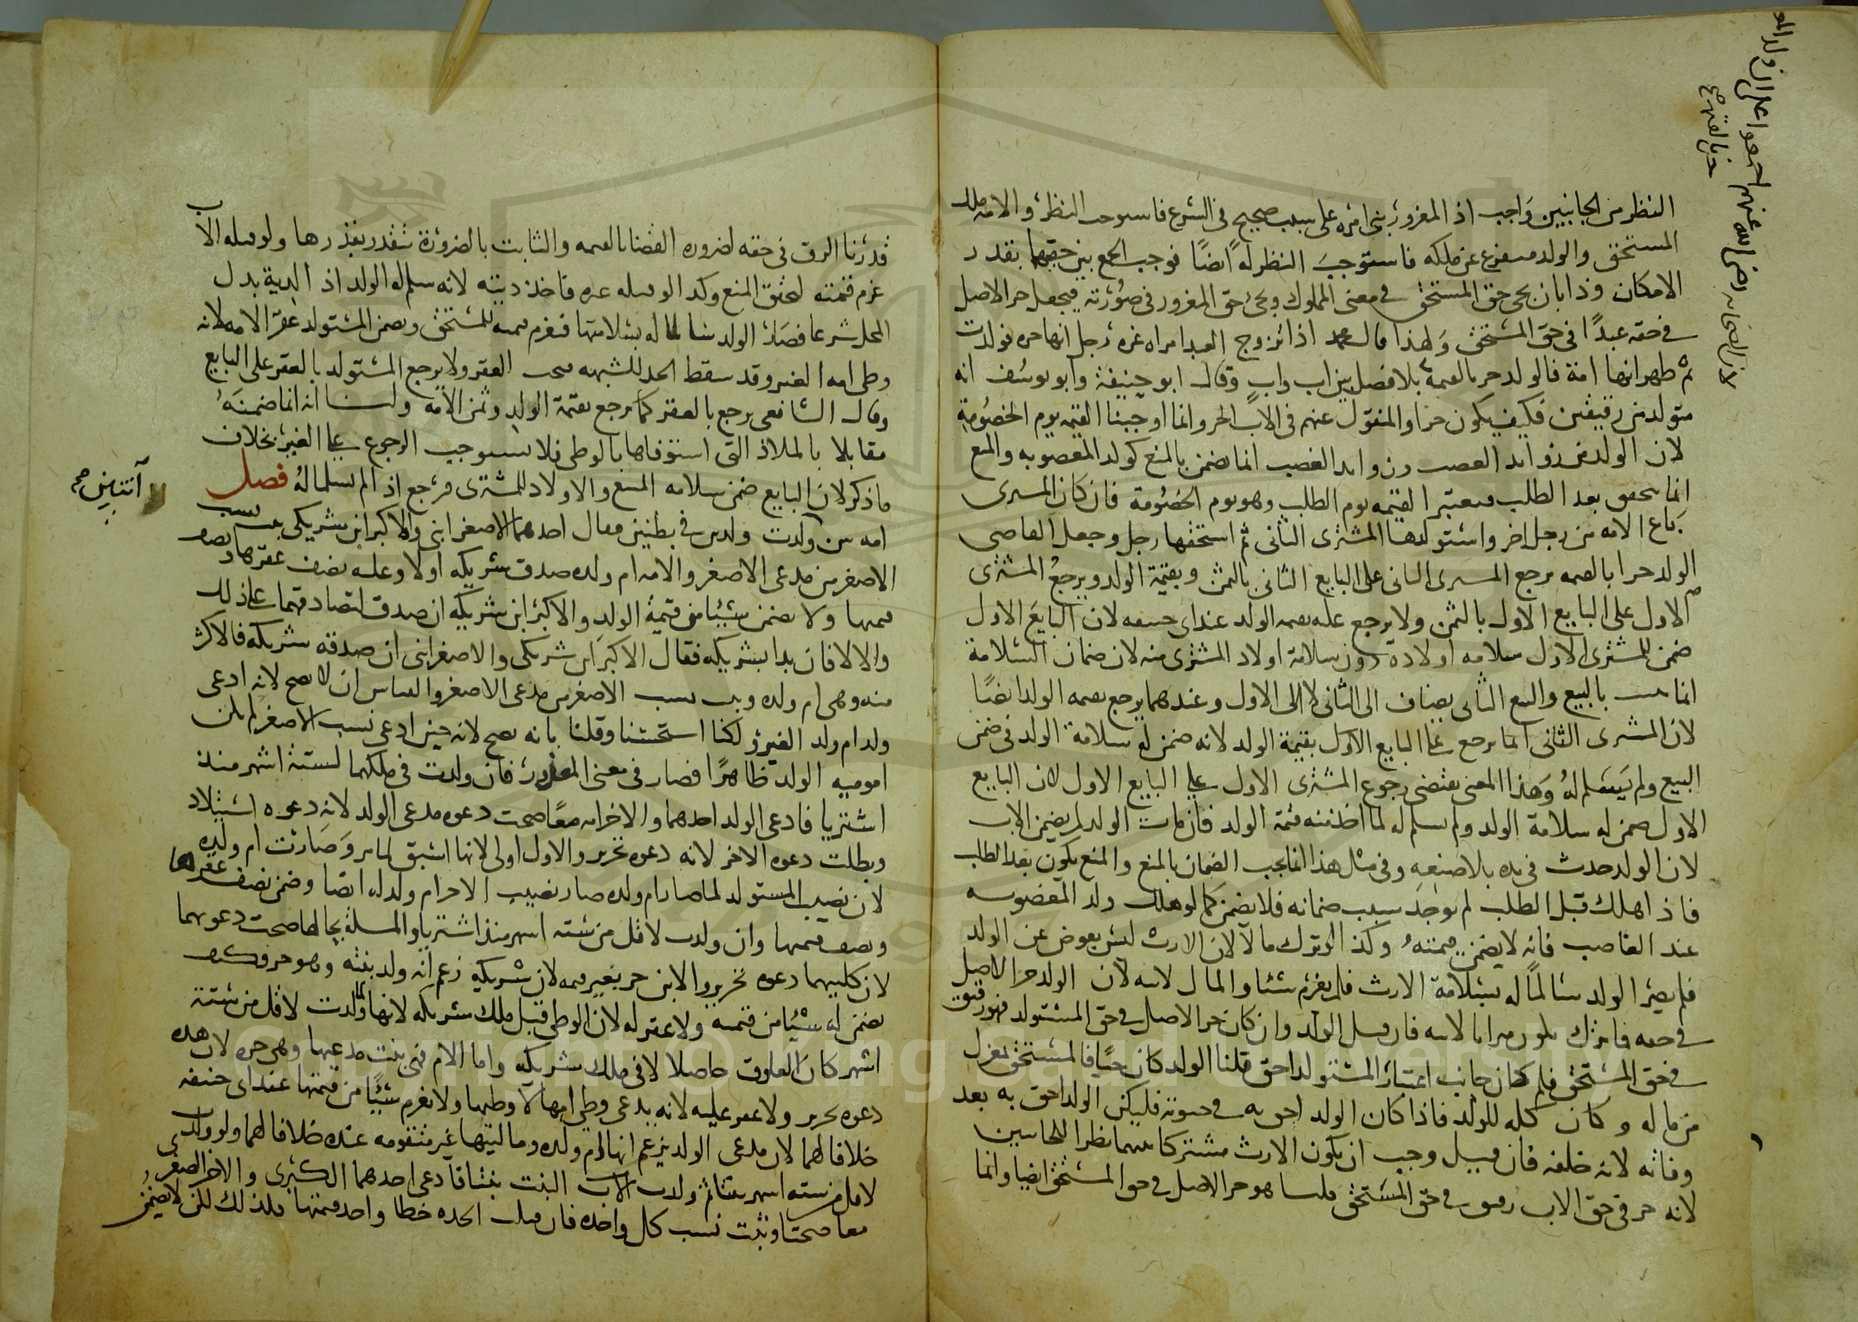 النظر من الجانبين واجب اذ المغرور بنى امره على سبب صحيح في الشرع فاستوجب النظر والامة ملك
المستحق والولد متفرع عن ملكه فاستوجب النظر له ايضا فوجب الجمع بين حقيهما بقدر
الامكان وذا بان يحي حق المستحق في معنى المملوك ويحي حق المغرور في صورته فيجعل حر الاصل
في حقه عبدا في حق المستحق ولهذا قال محمد اذا تزوج العبد امراة غره رجل انها حرة فولدت
ثم ظهر انها امة فالولد حر بالقيمة بلا فصل بين اب واب وقال ابو حنيفة وابو يوسف انه
متولد من رقيقين فكيف يكون حرا والمنقول عنهم في الاب الحر وانما اوجبنا القيمة يوم الخصومة
لان الولد من زوائد الغصب وزوائد الغصب انما يضمن بالمنع كولد المغصوبة والمنع
انما يتحقق بعد الطلب فيعتبر القيمة يوم الطلب وهو يوم الخصومة فان كان المشتري
باع الامة من رجل اخر واستولدها المشتري الثاني ثم استحقها رجل وجعل القاضي
الولد حرا بالقيمة يرجع المشتري الثاني على البايع الثاني بالثمن وبقيمة الولد ويرجع المشتري
الاول على البايع الاول بالثمن ولا يرجع عليه بقيمة الولد عند ابي حنيفة لان البايع الاول
ضمن للمشتري الاول سلامة اولاده دون سلامة اولاد المشتري منه لان ضمان السلامة
انما يثبت بالبيع والبيع الثاني يضاف الى الثاني لا الى الاول وعندهما يرجع بقيمة الولد ايضا
لان المشتري الثاني انما يرجع على البايع الاول بقيمة الولد لانه ضمن له سلامة الولد في ضمن
البيع ولم يسلم له وهذا المعنى يقتضي رجوع المشتري الاول على البايع الاول لان البايع
الاول ضمن له سلامة الولد ولم يسلم له لما اخذ منه قيمة الولد فان مات الولد لم يضمن الاب
لان الولد حدث في يده بلا صنعه وفي مثل هذا انما يجب الضمان بالمنع والمنع يكون بعد الطلب
فاذا هلك قبل الطلب لم يوجد سبب ضمانه فلا يضمن كما لو هلك ولد المغصوبة
عند الغاصب فانه لا يضمن قيمته وكذا لو ترك مالا لان الارث ليس بعوض عن الولد
فلم يصر الولد سالما له بسلامة الارث فلم يغرم شيئا والمال لابيه لان الولد حر الاصل
في حقه فما ترك يكون ميراثا لابيه فان قيل الولد وان كان حر الاصل في حق المستولد فهو رقيق
في حق المستحق فلم كان جانب اعتبار المستولد احق قلنا الولد كان حيا فالمستحق بمعزل
من ماله وكان كله للولد فاذا كان الولد احق به في حيوته فليكن الولد احق به بعد
وفاته لانه خلفه فان قيل وجب ان يكون الارث مشتركا بينهما نظرا للجانبين
لانه حر في حق الاب رقيق في حق المستحق قلنا هو حر الاصل في حق المستحق ايضا وانما
لان الصحابة رضي الله عنهم اجمعوا على ان ولد المغرور
حر بالقيمة صح
قدرنا الرق في حقه لضرورة القضا بالقيمة والثابت بالضرورة يتقدر بقدرها ولو قتله الاب
غرم قيمته لتحقق المنع وكذا لو قتله غيره فاخذ ديته لانه سلم له الولد اذ الدية بدل
المحل شرعا فصار الولد سالما له بسلامتها فيغرم قيمته للمستحق ويضمن المستولد عقر الامة لانه
وطي امة الغير وقد سقط الحد للشبهة فيجب العقر ولا يرجع المستولد بالعقر على البايع
وقال الشافعي يرجع بالعقر كما يرجع بقيمة الولد وثمن الامة ولنا انه انما ضمنه
مقابلا بالملاذ التي استوفاها بالوطي فلا يستوجب الرجوع على الغير بخلاف
ما ذكر لان البايع ضمن سلامة المبيع والاولاد للمشتري فيرجع اذا لم يسلما له فصل
امة بين اثنين ولدت ولدين في بطنين فقال احدهما الاصغر ابني والاكبر ابن شريكي يثبت نسب
الاصغر من مدعي الاصغر والامة ام ولده صدق شريكه اولا وعليه نصف عقرها ونصف
قيمتها ولا يضمن شيئا من قيمة الولد والاكبر ابن شريكه ان صدق لتصادقهما على ذلك
والا لا فان بدا بشريكه فقال الاكبر ابن شريكي والاصغر ابني ان صدقه شريكه فالاكبر
منه وهي ام ولده ويثبت نسب الاصغر من مدعي الاصغر والقياس ان لا يصح لانه ادعى
ولد ام ولد الغير ولكنا استحسنا وقلنا بانه يصح لانه حين ادعى نسب الاصغر لم يكن
امومية الولد ظاهرا فصار في معنى المغرور فان ولدت في ملكهما لستة اشهر منذ
اشتريا فادعى الولد احدهما والاخر امه معا صحت دعوة مدعي الولد لانه دعوة استيلاد
وبطلت دعوة الاخر لانه دعوة تحرير والاول اولى لانها اسبق لما مر وصارت ام ولده
لان نصيب المستولد لما صار ام ولده صار نصيب الاخر ام ولد له ايضا وضمن نصف عقرها
ونصف قيمتها وان ولدت لاقل من ستة اشهر منذ اشتريا والمسلة بحالها صحت دعوتهما
لان كليهما دعوة تحرير والابن حر بغير قيمة لان شريكه زعم انه ولد بنته وهو حر فكيف
يضمن له شيئا من قيمته ولا عقر له لان الوطي قبل ملك شريكه لانها ولدت لاقل من ستة
اشهر كان العلوق حاصلا لا في ملك شريكه واما الام فهي بنت مدعيها وهي حرة لان هذه
دعوة تحرير ولا عقر عليه لانه يدعي وطي امها لا وطيها ولا يغرم شيئا من قيمتها عند ابي حنيفة
خلافا لهما لان مدعي الولد يزعم انها ام ولده وماليتها غير متقومة عنده خلافا لهما ولو ولدت
لاقل من ستة اشهر بنتا ثم ولدت البنت بنتا فادعى احدهما الكبرى والاخر الصغرى
معا صحتا ويثبت نسب كل واحدة فان قيل الجدة خطا واحد قيمتها فلذلك لكن لا يضمن
اثنين صح